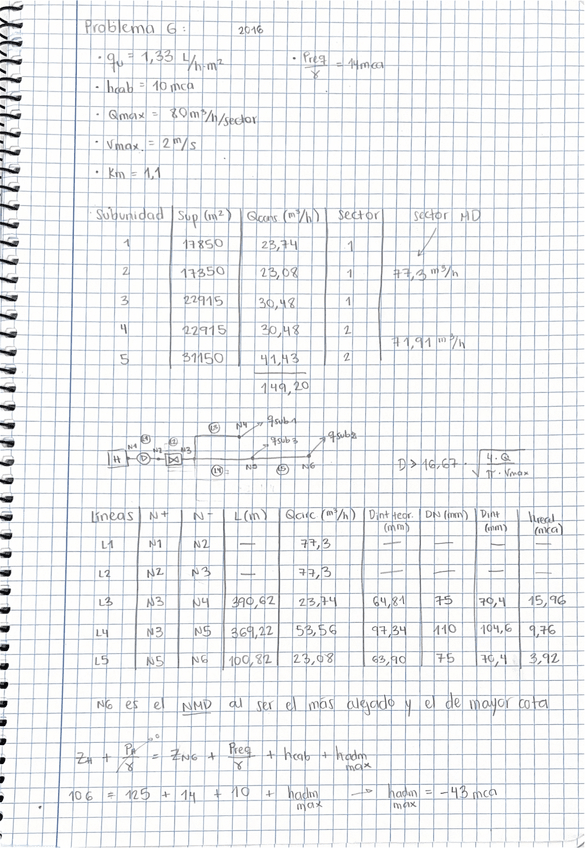 Problema 6: 2016
• qu = 1,33 L/h·m² • Preq/γ = 14mca
• hcab = 10 mca
• Qmax = 80 m³/h/sector
• Vmax. = 2 m/s
• Km = 1,1
Subunidad Sup (m²) Qcons (m³/h) sector sector MD
1 17850 23,74 1
2 17350 23,08 1 77,3 m³/h
3 22915 30,48 1
4 22915 30,48 2 71,91 m³/h
5 31150 41,43 2
149,20
H N1 L1 N2 L2 N3 L3 N4 qsub1
qsub3 qsub2
L4 N5 L5 N6
D > 16,67 · √(4·Q / π·Vmax)
Líneas N+ N- L(m) Qcirc (m³/h) Dint teor. (mm) DN (mm) Dint (mm) hreal (mca)
L1 N1 N2 — 77,3 — — — —
L2 N2 N3 — 77,3 — — — —
L3 N3 N4 390,62 23,74 64,81 75 70,4 15,96
L4 N3 N5 369,22 53,56 97,34 110 104,6 9,76
L5 N5 N6 100,82 23,08 63,90 75 70,4 3,92
N6 es el NMD al ser el más alejado y el de mayor cota
ZA + PA/γ→0 = ZN6 + Preq/γ + hcab + hadm max
106 = 125 + 14 + 10 + hadm max → hadm max = -43 mca